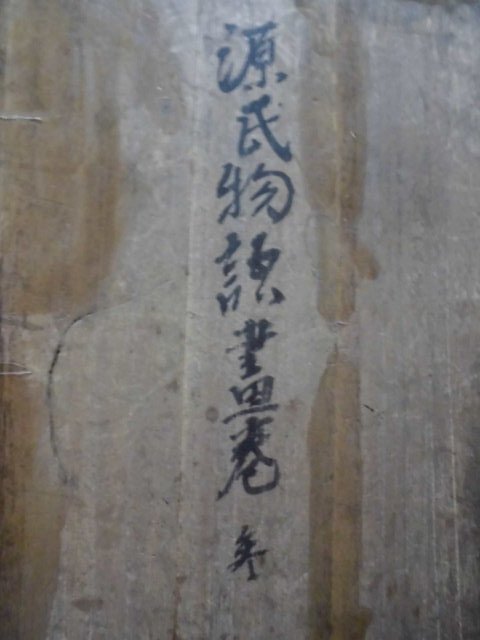 源氏物語畫巻 参